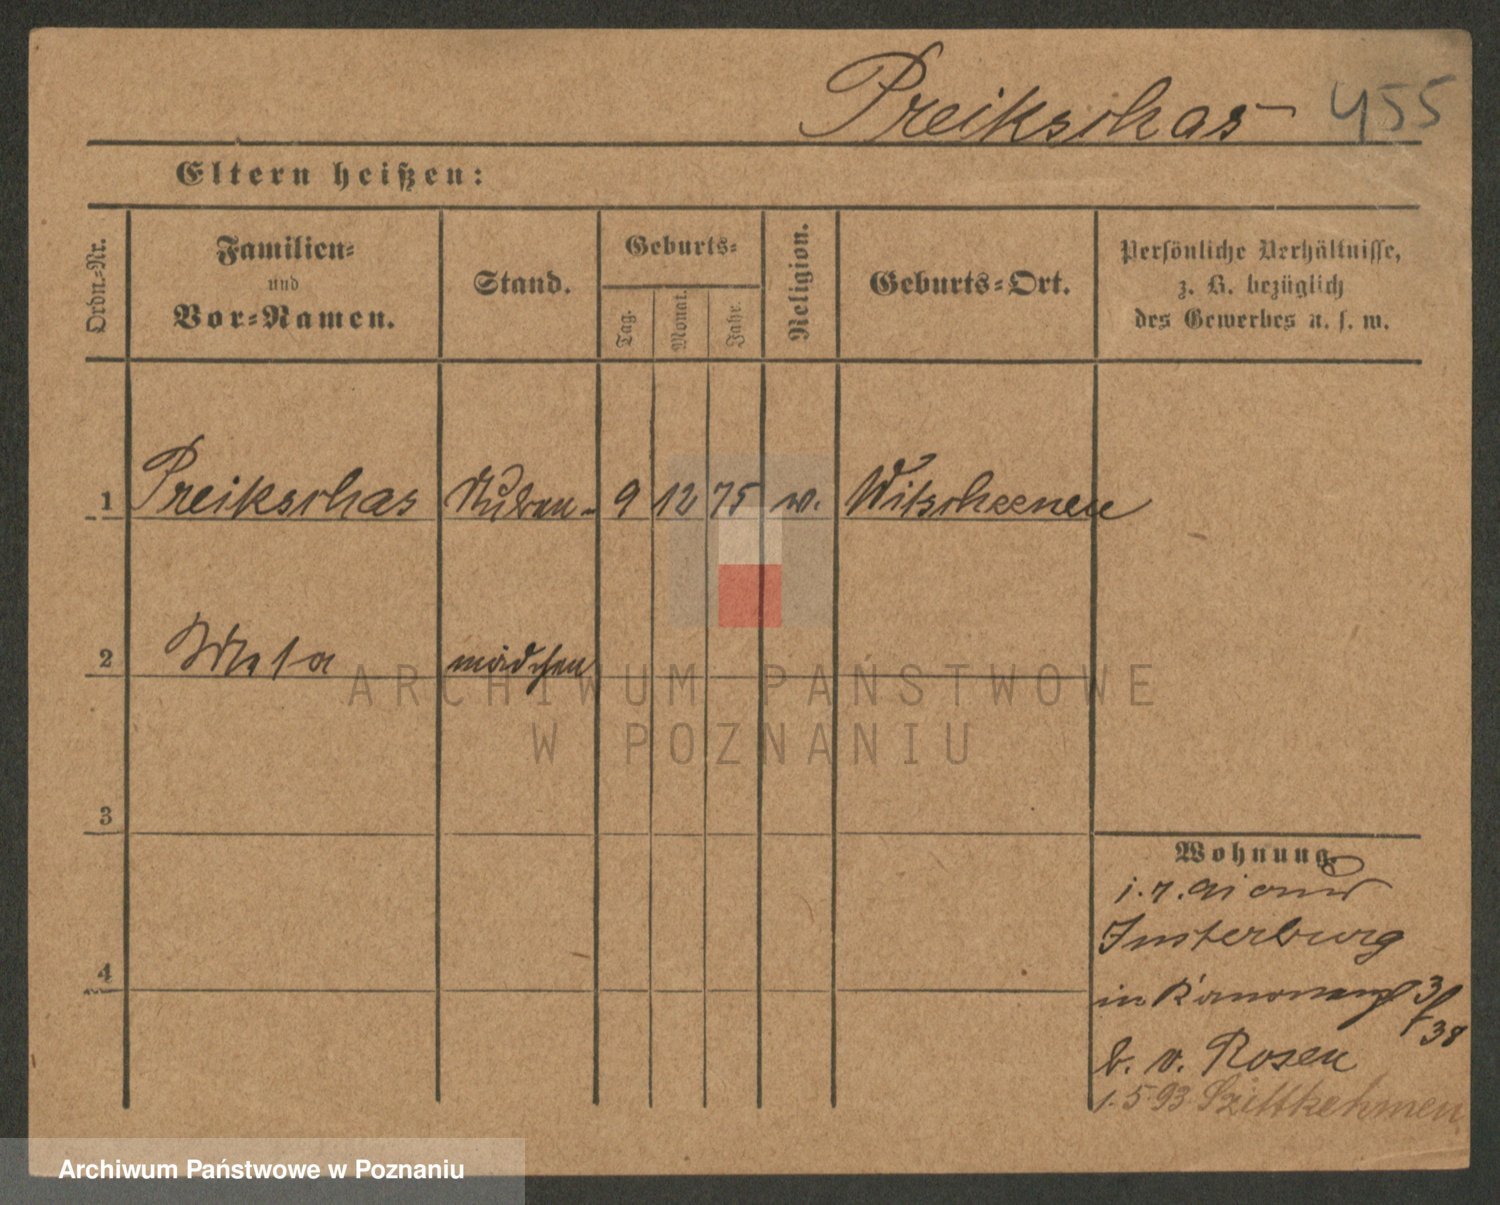 Preikschas 455
Eltern heißen:
Ordn.-Nr.
Familien-
und
Vor-Namen.
Stand.
Geburts-
Tag.
Monat.
Jahr.
Religion.
Geburts-Ort.
Persönliche Verhältnisse,
z. B. bezüglich
des Gewerbes u. s. w.
1 Preikschas Stuben- 9 12 75 Witscheenen
2 Meta mädchen
3
4
Wohnung
Insterburg
in 3/38
b. v. Rosen
1.5.93 Szittkehmen
ARCHIWUM PAŃSTWOWE
W POZNANIU
Archiwum Państwowe w Poznaniu